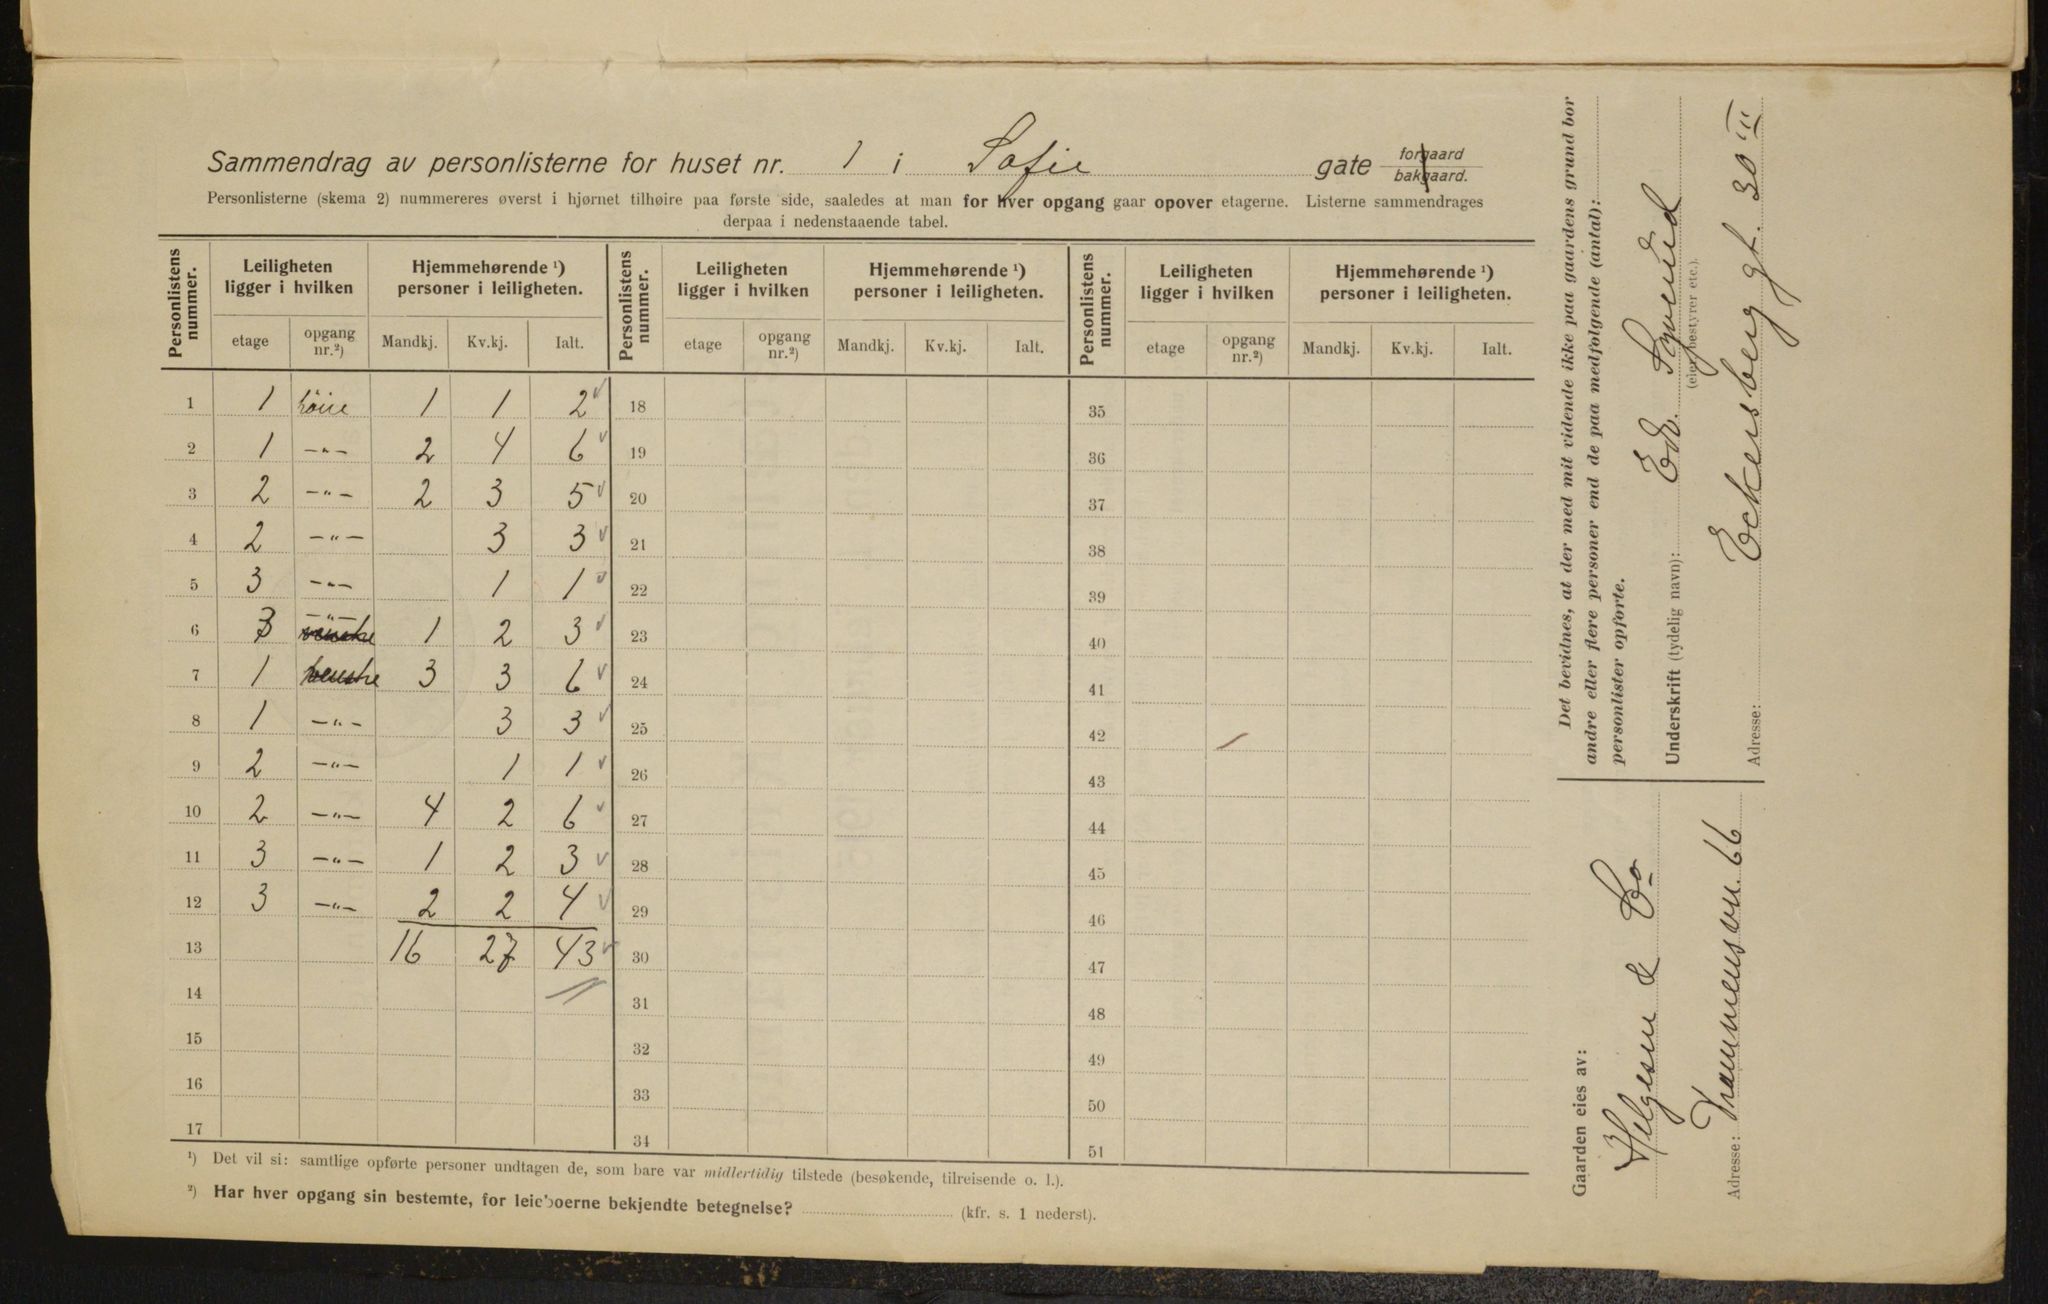 Sammendrag av personlisterne for huset nr. 1 i Sofie gate forgaard bakgaard.
Personlisterne (skema 2) nummereres øverst i hjørnet tilhøire paa første side, saaledes at man for hver opgang gaar opover etagerne. Listerne sammendrages
derpaa i nedenstaaende tabel.
Personlistens nummer. Leiligheten ligger i hvilken Hjemmehørende ¹) personer i leiligheten. Personlistens nummer. Leiligheten ligger i hvilken Hjemmehørende ¹) personer i leiligheten. Personlistens nummer. Leiligheten ligger i hvilken Hjemmehørende ¹) personer i leiligheten.
etage opgang nr.²) Mandkj. Kv.kj. Ialt. etage opgang nr.²) Mandkj. Kv.kj. Ialt. etage opgang nr.²) Mandkj. Kv.kj. Ialt.
1 1 höire 1 1 2 18 35
2 1 -"- 2 4 6 19 36
3 2 -"- 2 3 5 20 37
4 2 -"- 3 3 21 38
5 3 -"- 1 1 22 39
6 3 -"- venstre 1 2 3 23 40
7 1 venstre 3 3 6 24 41
8 1 -"- 3 3 25 42
9 2 -"- 1 1 26 43
10 2 -"- 4 2 6 27 44
11 3 -"- 1 2 3 28 45
12 3 -"- 2 2 4 29 46
13 16 27 43 30 47
14 31 48
15 32 49
16 33 50
17 34 51
¹) Det vil si: samtlige opførte personer undtagen de, som bare var midlertidig tilstede (besøkende, tilreisende o. l.).
²) Har hver opgang sin bestemte, for leieboerne bekjendte betegnelse? (kfr. s. 1 nederst).
Det bevidnes, at der med mit vidende ikke paa gaardens grund bor
andre eller flere personer end de paa medfølgende (antal):
personlister opførte.
Underskrift (tydelig navn): Edv.
(eier, bestyrer etc.).
Adresse: Eckersberg gt. 30 III
Gaarden eies av:
Helgesen & Co
Adresse: Trommensvn. 66